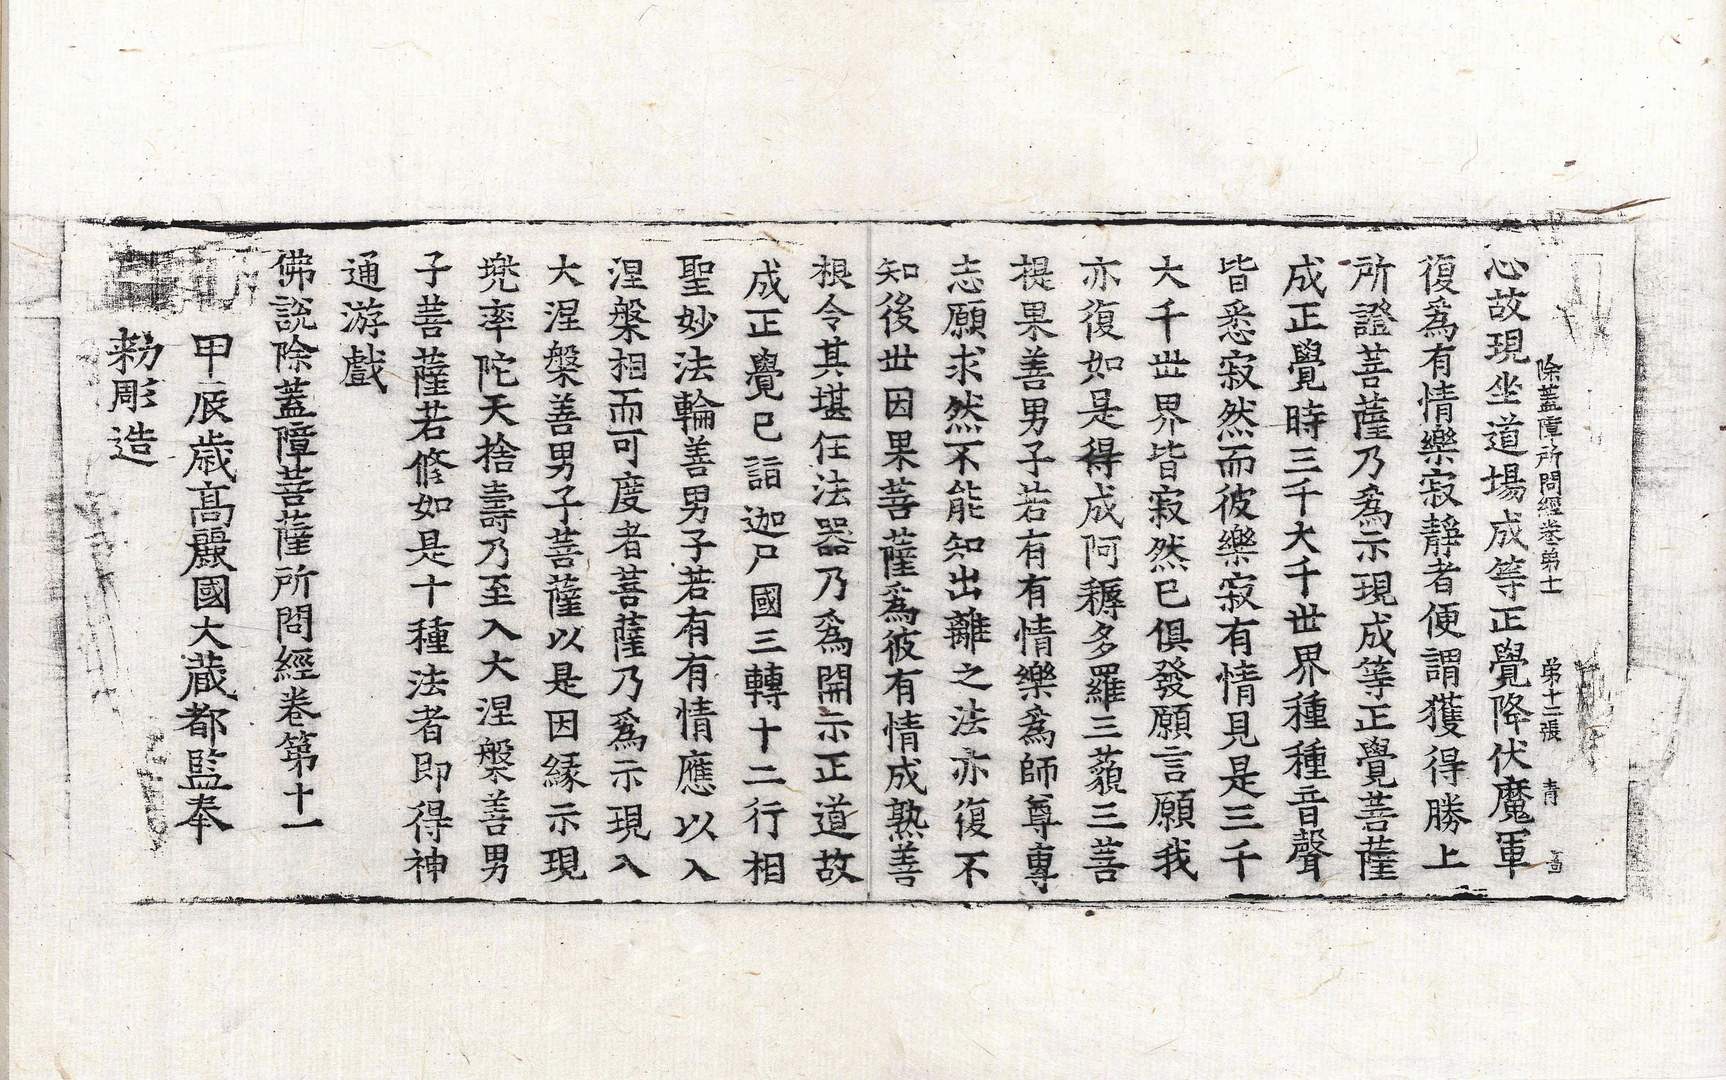 除蓋障所問經卷弟十一 弟十二張 青
心故現坐道場成等正覺降伏魔軍
復爲有情樂寂靜者便謂獲得勝上
所證菩薩乃爲示現成等正覺菩薩
成正覺時三千大千世界種種音聲
皆悉寂然而彼樂寂有情見是三千
大千世界皆寂然已俱發願言願我
亦復如是得成阿耨多羅三藐三菩
提果善男子若有有情樂爲師尊專
志願求然不能知出離之法亦復不
知後世因果菩薩爲彼有情成熟善
根令其堪任法器乃爲開示正道故
成正覺已詣迦尸國三轉十二行相
聖妙法輪善男子若有有情應以入
涅槃相而可度者菩薩乃爲示現入
大涅槃善男子菩薩以是因緣示現
兜率陀天捨壽乃至入大涅槃善男
子菩薩若修如是十種法者即得神
通游戲
佛說除蓋障菩薩所問經卷第十一
甲辰歲高麗國大藏都監奉
勅彫造